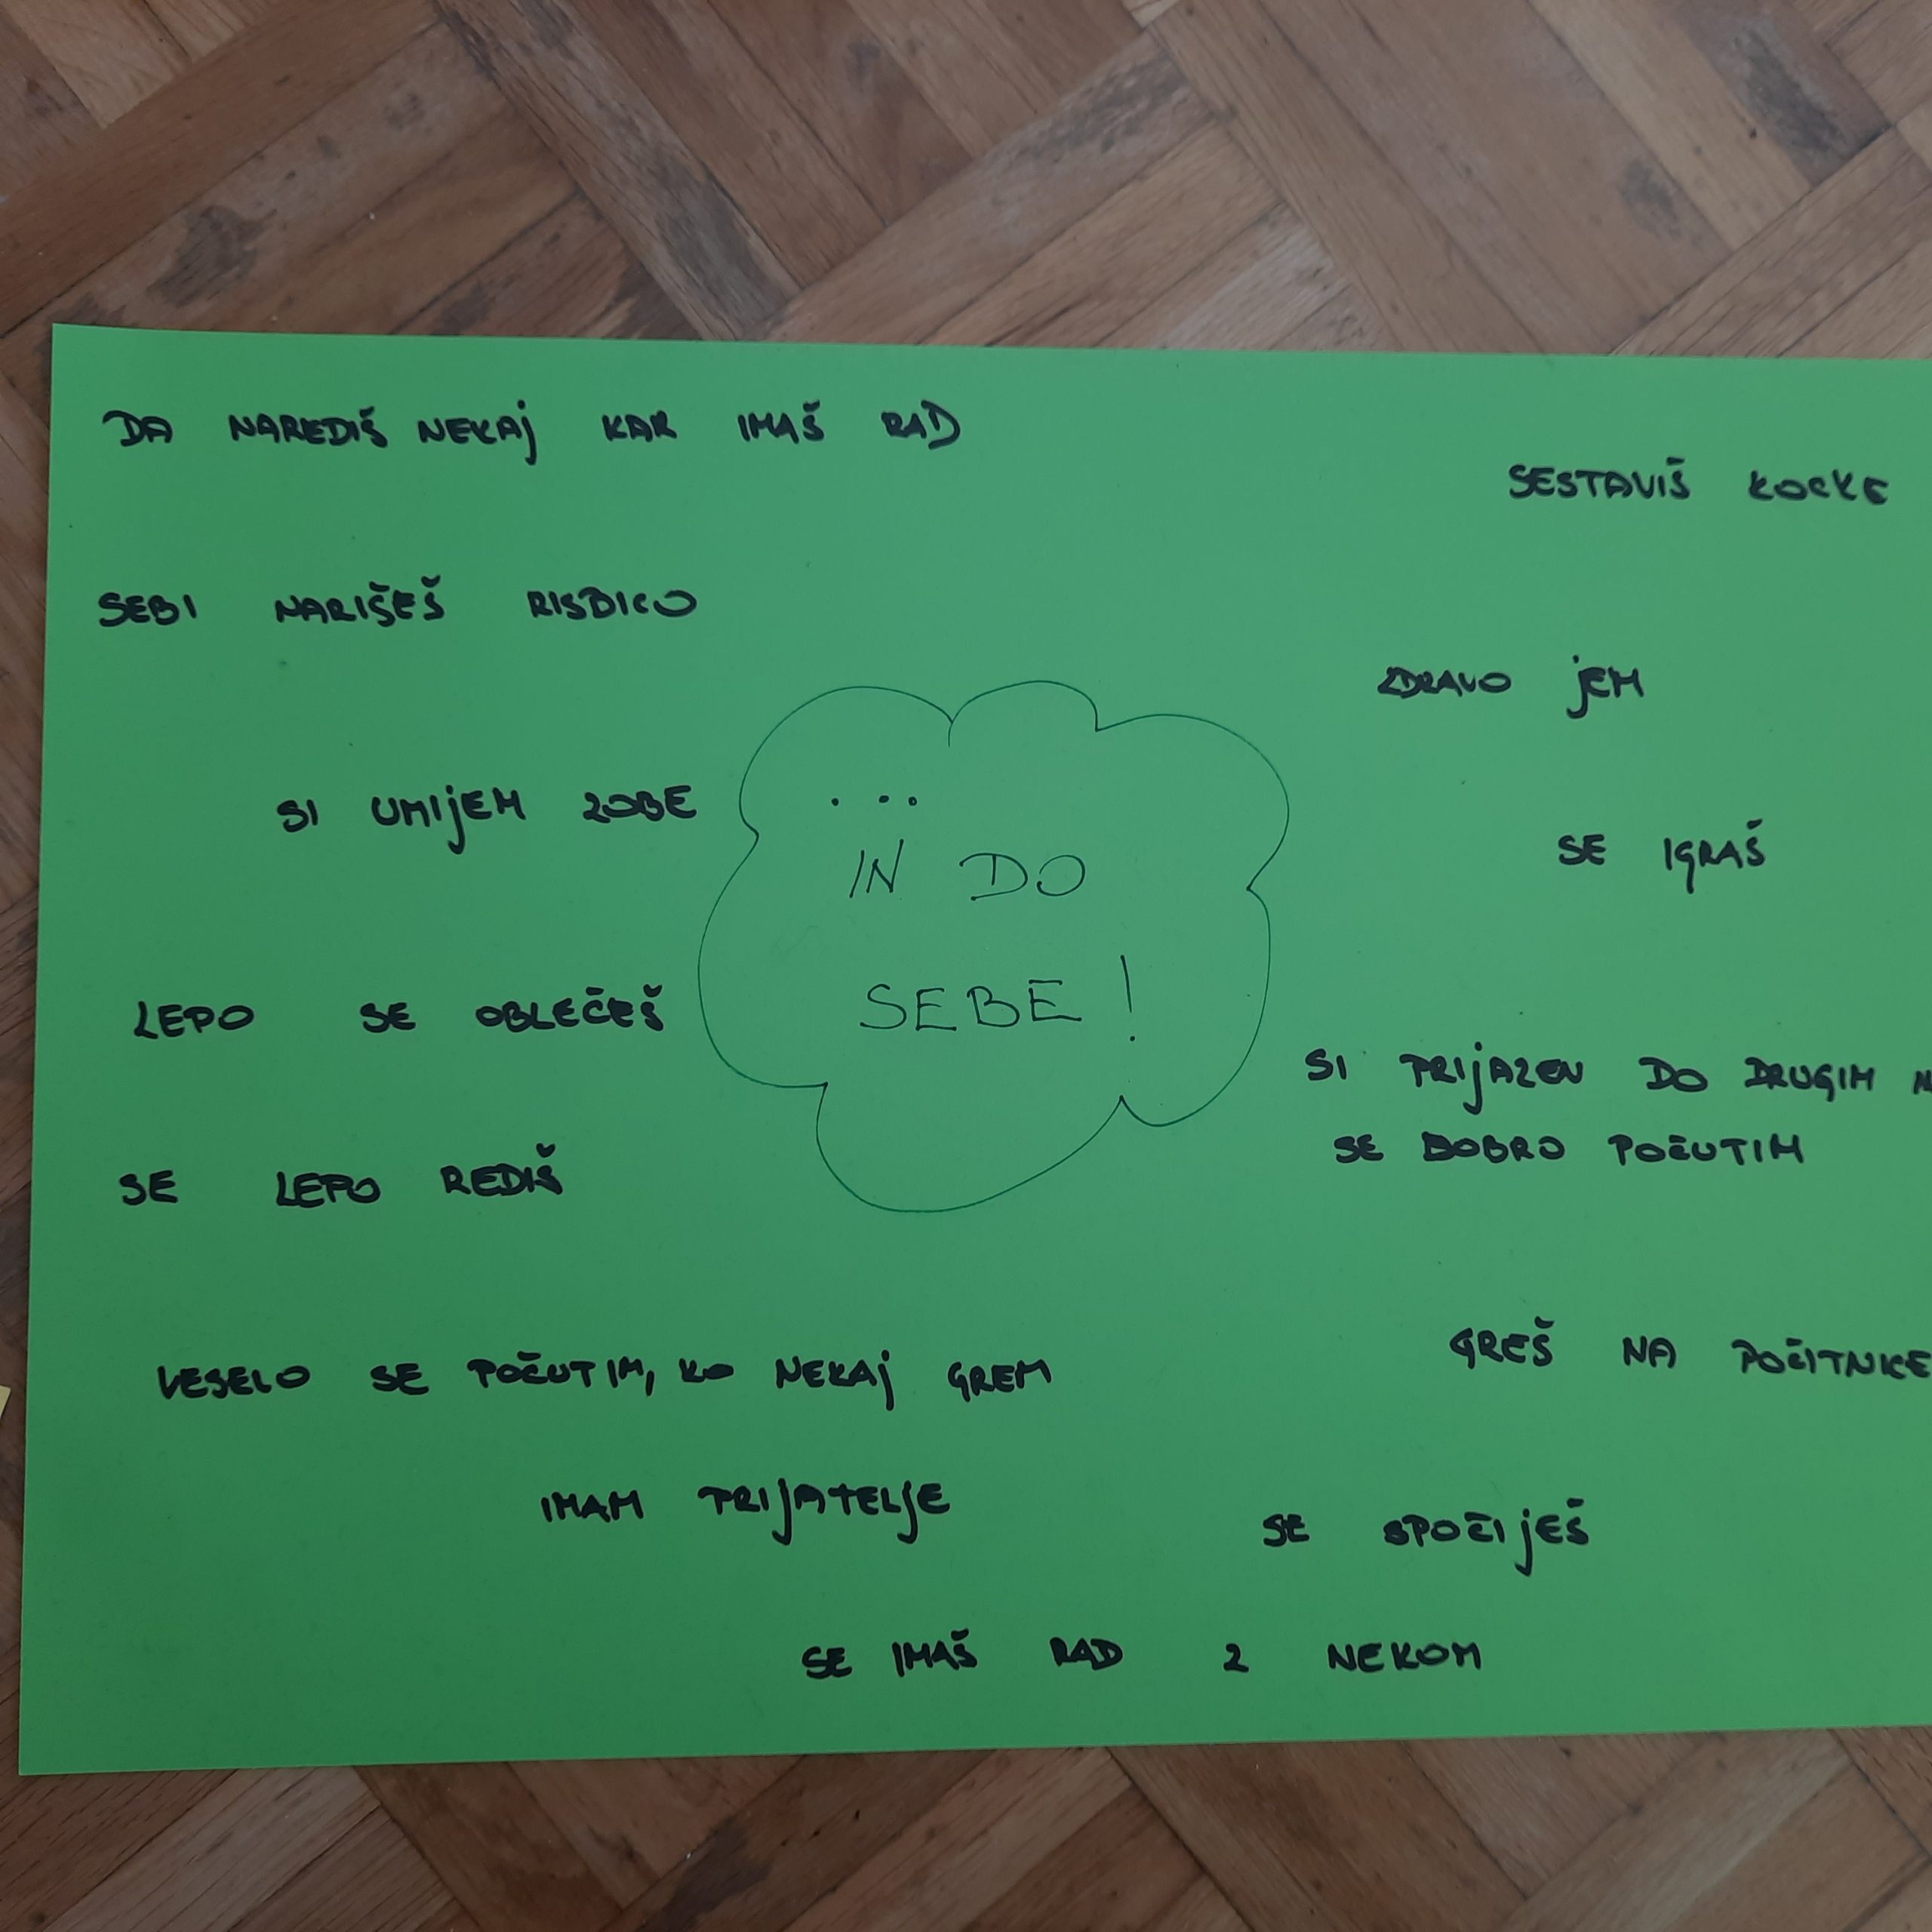 DA NAREDIŠ NEKAJ KAR IMAŠ RAD
SESTAVIŠ KOCKE
SEBI NARIŠEŠ RISBICO
ZDRAVO JEM
SI UMIJEM ZOBE
SE IGRAŠ
...
IN DO
SEBE!
LEPO SE OBLEČEŠ
SI PRIJAZEN DO DRUGIM
SE DOBRO POČUTIM
SE LEPO REDIŠ
VESELO SE POČUTIM, KO NEKAJ GREM
GREŠ NA POČITNICE
IMAM PRIJATELJE
SE SPOČIJEŠ
SE IMAŠ RAD Z NEKOM